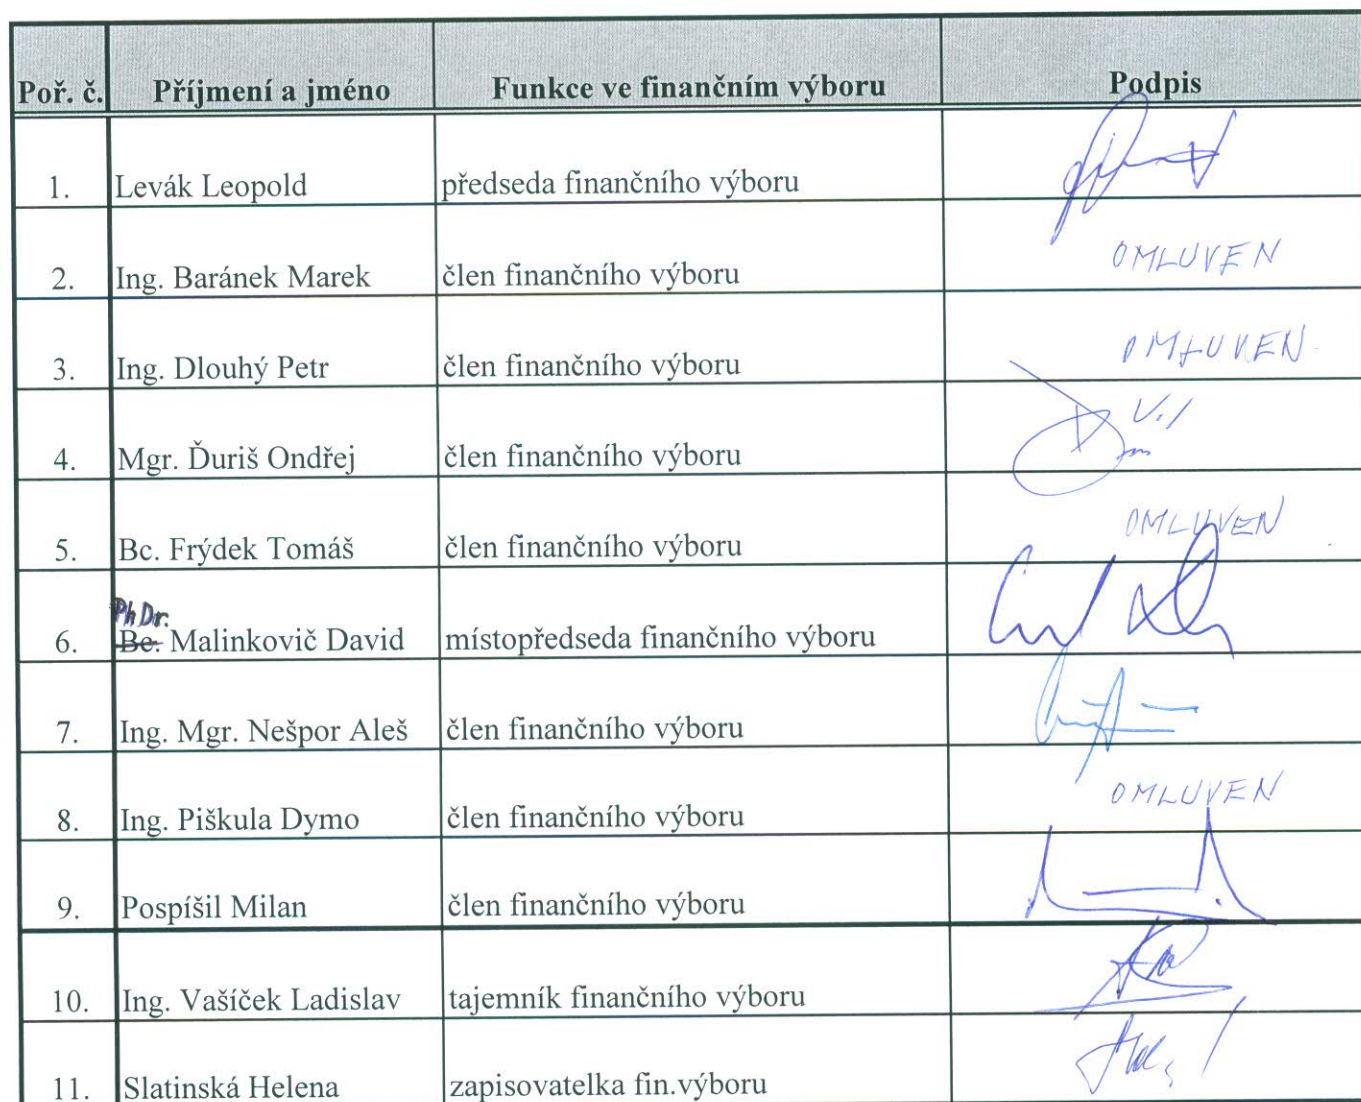 Poř. č. Příjmení a jméno Funkce ve finančním výboru Podpis
1. Levák Leopold předseda finančního výboru
2. Ing. Baránek Marek člen finančního výboru OMLUVEN
3. Ing. Dlouhý Petr člen finančního výboru OMLUVEN
4. Mgr. Ďuriš Ondřej člen finančního výboru
5. Bc. Frýdek Tomáš člen finančního výboru OMLUVEN
PhDr.
6. Bc. Malinkovič David místopředseda finančního výboru
7. Ing. Mgr. Nešpor Aleš člen finančního výboru
8. Ing. Piškula Dymo člen finančního výboru OMLUVEN
9. Pospíšil Milan člen finančního výboru
10. Ing. Vašíček Ladislav tajemník finančního výboru
11. Slatinská Helena zapisovatelka fin.výboru